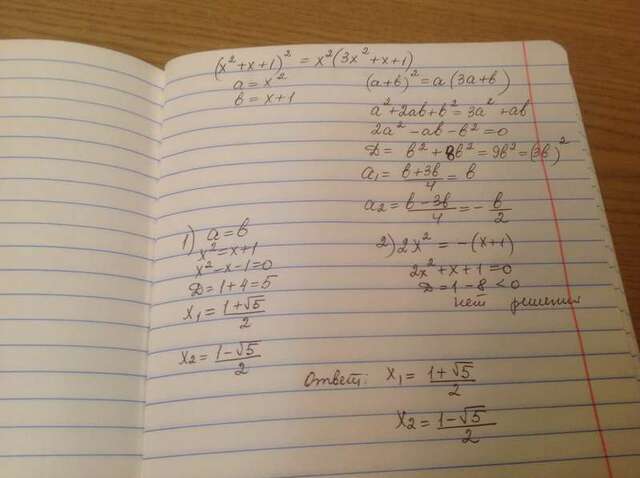 (x²+x+1)² = x²(3x²+x+1)
a = x²
b = x+1
(a+b)² = a(3a+b)
a²+2ab+b² = 3a²+ab
2a²-ab-b²=0
D = b²+8b²=9b²=(3b)²
a₁ = (b+3b)/4 = b
a₂ = (b-3b)/4 = -b/2
1) a=b
x²=x+1
x²-x-1=0
D=1+4=5
x₁ = (1+√5)/2
x₂ = (1-√5)/2
2) 2x² = -(x+1)
2x²+x+1=0
D=1-8<0
нет решения
Ответ: x₁ = (1+√5)/2
x₂ = (1-√5)/2